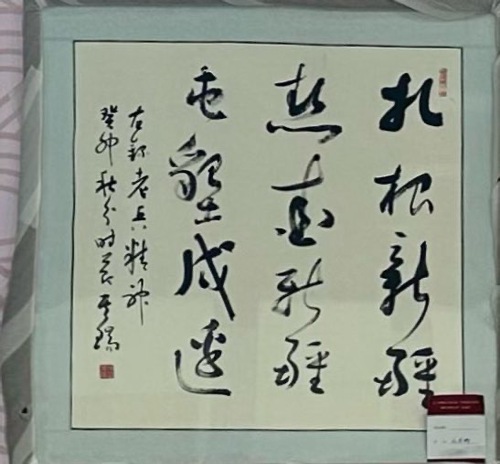 扎根新疆
热爱新疆
屯垦戍边
右录老兵精神
癸卯秋分时节